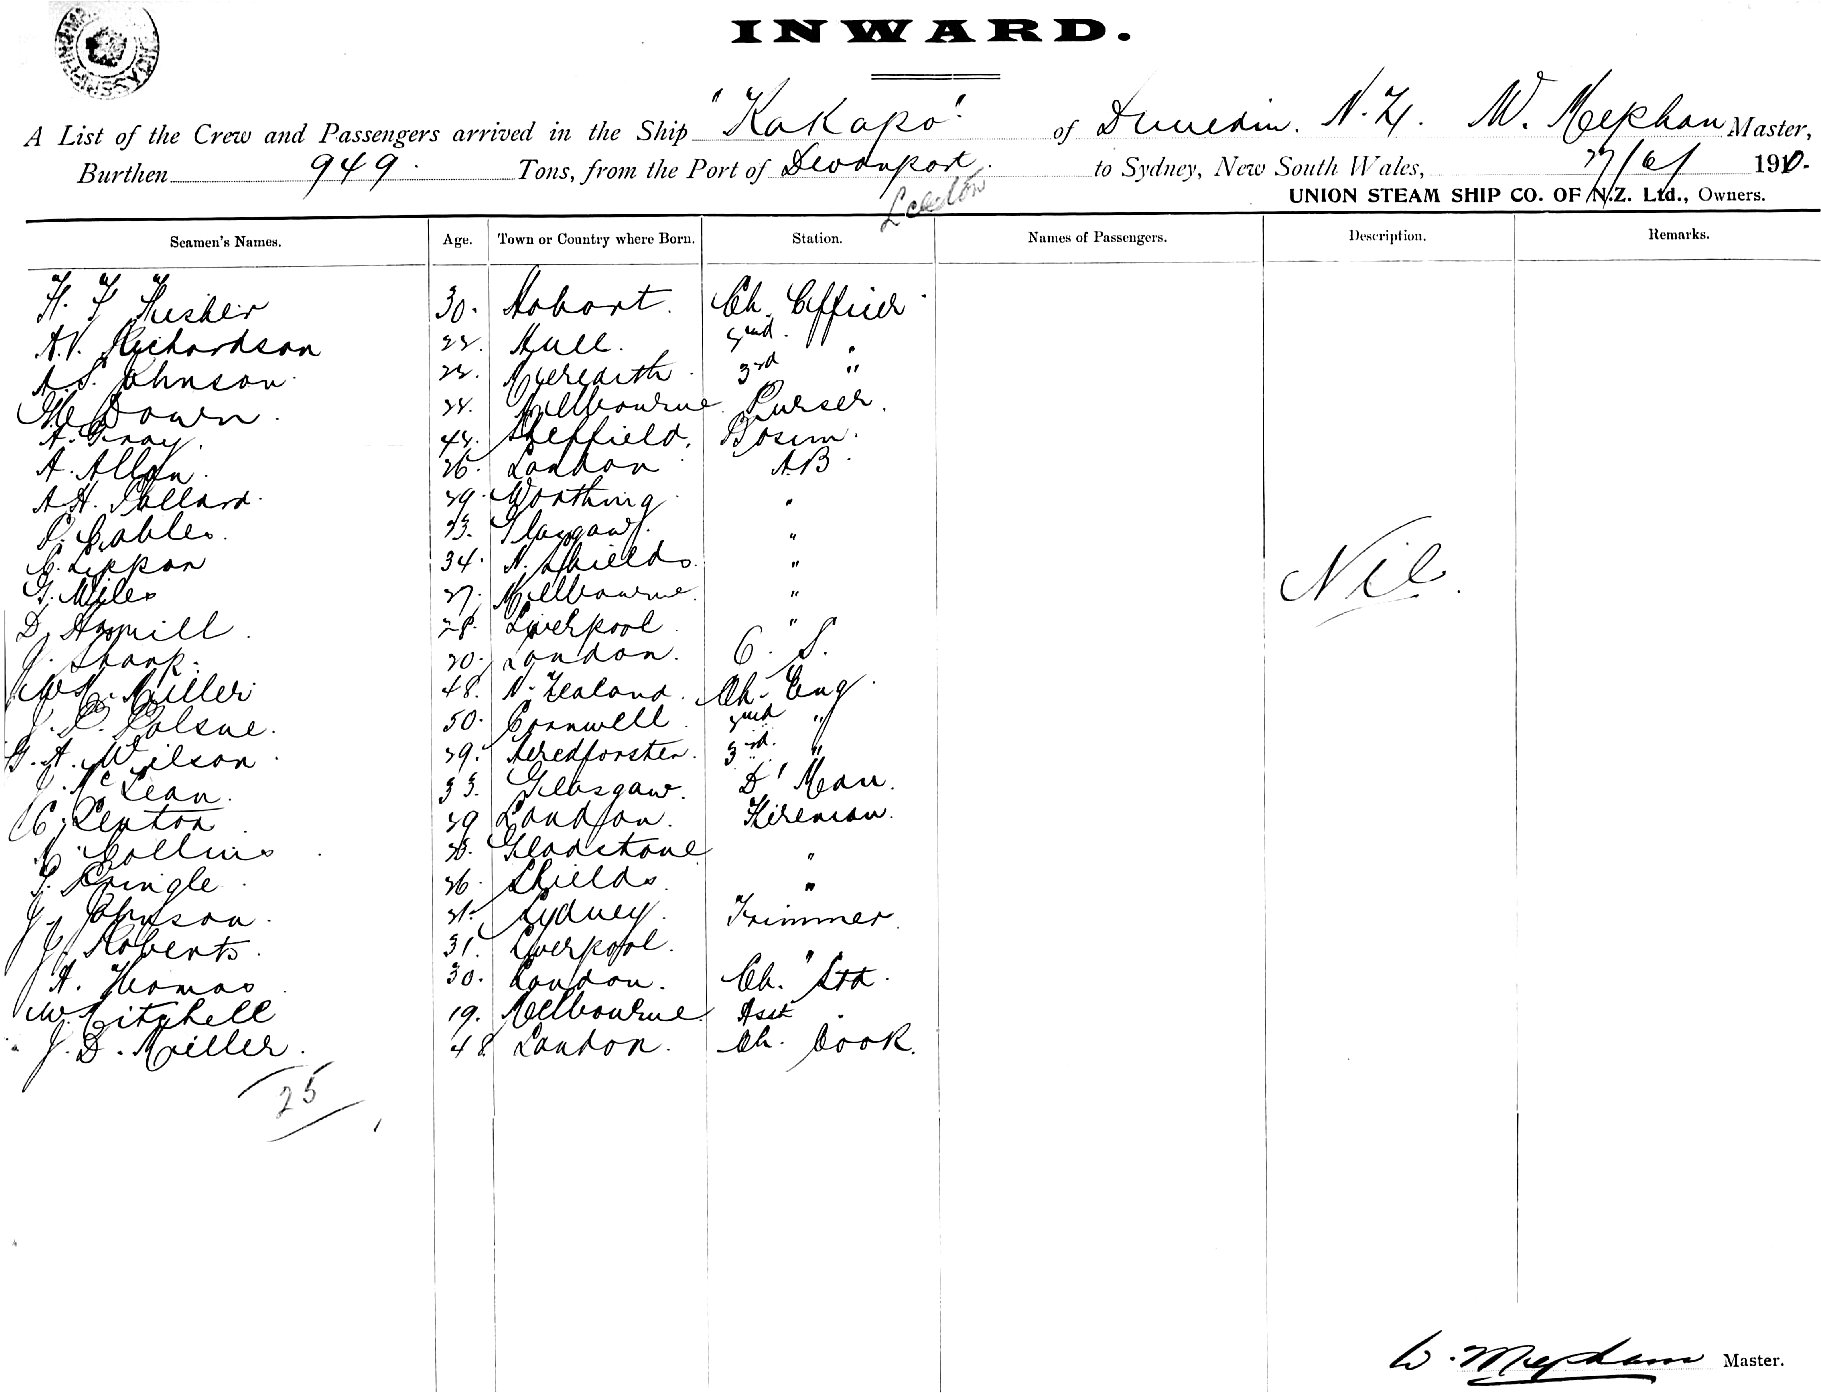 INWARD.
A List of the Crew and Passengers arrived in the Ship "Kakapo" of Dunedin. N.Z. W. Mephan Master,
Burthen 949. Tons, from the Port of Devonport. to Sydney, New South Wales, 27/6/ 1910.
UNION STEAM SHIP CO. OF N.Z. Ltd., Owners.
Seamen's Names. Age. Town or Country where Born. Station. Names of Passengers. Description. Remarks.
H. F Fisher 30. Hobart. Ch. Officer
A.V. Richardson Hull. 2nd "
A.S. Johnson. Meredith 3rd "
Down. Melbourne Purser.
A. Gray. Sheffield. Bosun.
A. Allan. 26. London A.B.
A.H. Pollard. 29. Worthing "
P. Cables. 23. Glasgow. "
C. Lippon 34. N. Shields. "
G. Miles 27. Melbourne. "
D. Hamill. 28. Liverpool. "
J. Sharp. 20. London. O. S.
Miller 48. N. Zealand. Ch. Eng.
50. Cornwell 2nd "
G. A. Wilson. 29. 3rd. "
J. McLean. 33. Glasgow. D' Man.
C. Lenton 29 London. Fireman.
Collins Gladstone "
G. Pringle. 26. Shields. "
J. Johnson. 21. Sydney. Trimmer.
J. Roberts. 31. Liverpool. "
A. Thomas 30. London. Ch. Std.
W. Mitchell 19. Melbourne Asst
J. D. Miller. 48 London. Ch. Cook.
Nil.
25
W. Mephan Master.